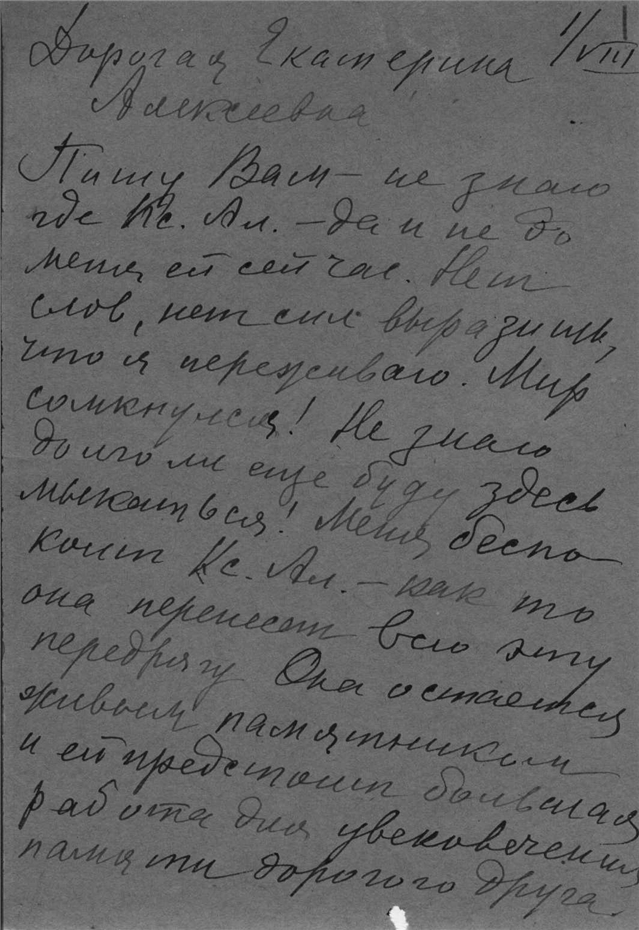 1/VIII
Дорогая Екатерина
Алексеевна
Пишу Вам – не знаю
где Кс. Ал. – да и не до
меня ей сейчас. Нет
слов, нет сил выразить,
что я переживаю. Мир
сомкнулся! Не знаю
долго ли еще буду здесь
мыкаться! Меня беспо-
коит Кс. Ал. – как то
она перенесет всю эту
передрягу Она остается
живым памятником
и ей предстоит большая
работа для увековечения
памяти дорогого друга.